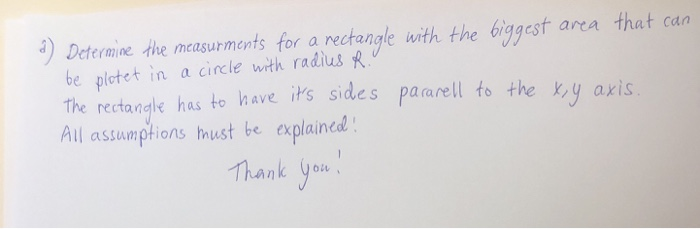 a) Determine the measurments for a rectangle with the biggest area that can
be plotet in a circle with radius R.
The rectangle has to have it's sides pararell to the x,y axis.
All assumptions must be explained!
Thank you!